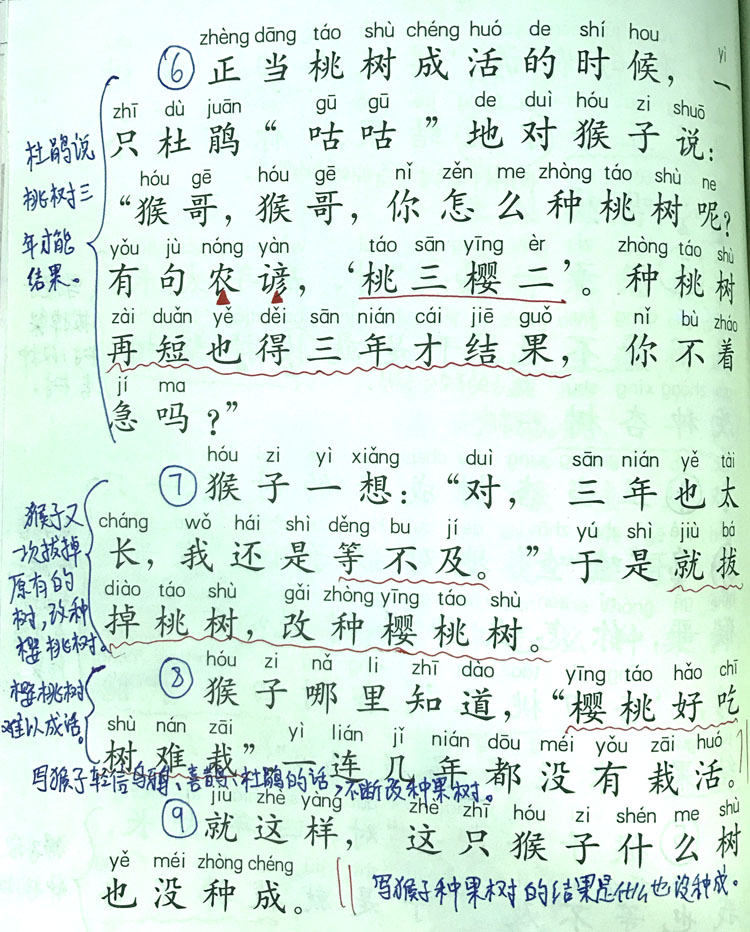 zhèng dāng táo shù chéng huó de shí hou yì
⑥正当桃树成活的时候，一
zhī dù juān gū gū de duì hóu zi shuō
只杜鹃“咕咕”地对猴子说：
hóu gē hóu gē nǐ zěn me zhòng táo shù ne
“猴哥，猴哥，你怎么种桃树呢？
yǒu jù nóng yàn táo sān yīng èr zhòng táo shù
有句农谚，‘桃三樱二’。种桃树
zài duǎn yě děi sān nián cái jiē guǒ nǐ bù zháo
再短也得三年才结果，你不着
jí ma
急吗？”
杜鹃说
桃树三
年才能
结果。
hóu zi yì xiǎng duì sān nián yě tài
⑦猴子一想：“对，三年也太
cháng wǒ hái shì děng bu jí yú shì jiù bá
长，我还是等不及。”于是就拔
diào táo shù gǎi zhòng yīng táo shù
掉桃树，改种樱桃树。
猴子又
一次拔掉
原有的
树，改种
樱桃树。
hóu zi nǎ li zhī dào yīng táo hǎo chī
⑧猴子哪里知道，“樱桃好吃
shù nán zāi yì lián jǐ nián dōu méi yǒu zāi huó
树难栽”一连几年都没有栽活。
樱桃树
难以成活。
写猴子轻信乌鸦、喜鹊、杜鹃的话，不断改种果树。
jiù zhè yàng zhè zhī hóu zi shén me shù
⑨就这样，这只猴子什么树
yě méi zhòng chéng
也没种成。
写猴子种果树的结果是什么也没种成。